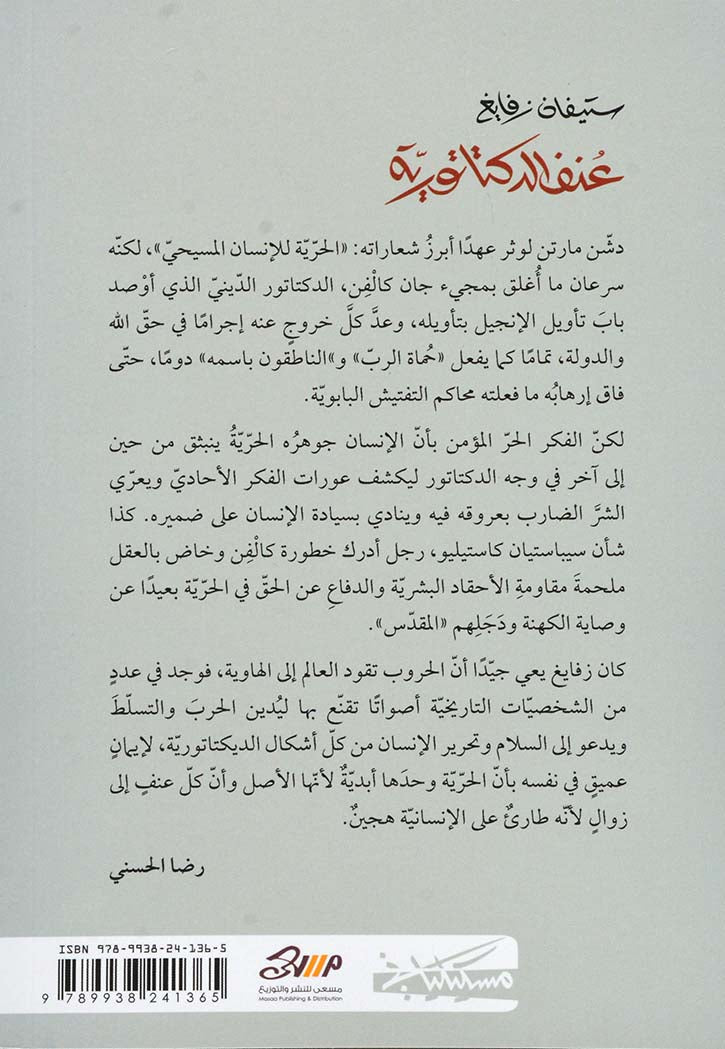 ستيفان زفايغ
عُنف الدكتاتوريّة
دشّن مارتن لوثر عهدًا أبرزُ شعاراته: «الحرّية للإنسان المسيحيّ»، لكنّه
سرعان ما أُغلق بمجيء جان كالْفِن، الدكتاتور الدّينيّ الذي أوْصد
بابَ تأويل الإنجيل بتأويله، وعدَّ كلَّ خروجٍ عنه إجرامًا في حقّ الله
والدولة، تمامًا كما يفعل «حُماة الربّ» و»الناطقون باسمه» دومًا، حتّى
فاق إرهابُه ما فعلته محاكم التفتيش البابويّة.
لكنّ الفكر الحرّ المؤمن بأنّ الإنسان جوهرُه الحرّيةُ ينبثق من حين
إلى آخر في وجه الدكتاتور ليكشف عورات الفكر الأحاديّ ويعرّي
الشرَّ الضارب بعروقه فيه وينادي بسيادة الإنسان على ضميره. كذا
شأن سيباستيان كاستيليو، رجل أدرك خطورة كالْفِن وخاض بالعقل
ملحمةَ مقاومةِ الأحقاد البشريّة والدفاعِ عن الحقّ في الحرّية بعيدًا عن
وصاية الكهنة ودَجَلِهم «المقدّس».
كان زفايغ يعي جيّدًا أنّ الحروب تقود العالم إلى الهاوية، فوجد في عددٍ
من الشخصيّات التاريخيّة أصواتًا تقنّع بها ليُدين الحربَ والتسلّطَ
ويدعو إلى السلام وتحرير الإنسان من كلّ أشكال الديكتاتوريّة، لإيمانٍ
عميقٍ في نفسه بأنّ الحرّية وحدَها أبديّةٌ لأنّها الأصل وأنّ كلّ عنفٍ إلى
زوالٍ لأنّه طارئٌ على الإنسانيّة هجينٌ.
رضا الحسني
ISBN 978-9938-24-136-5
9 789938 241365
مسعى
مسعى للنشر والتوزيع
Masaa Publishing & Distribution
مسكيلياني